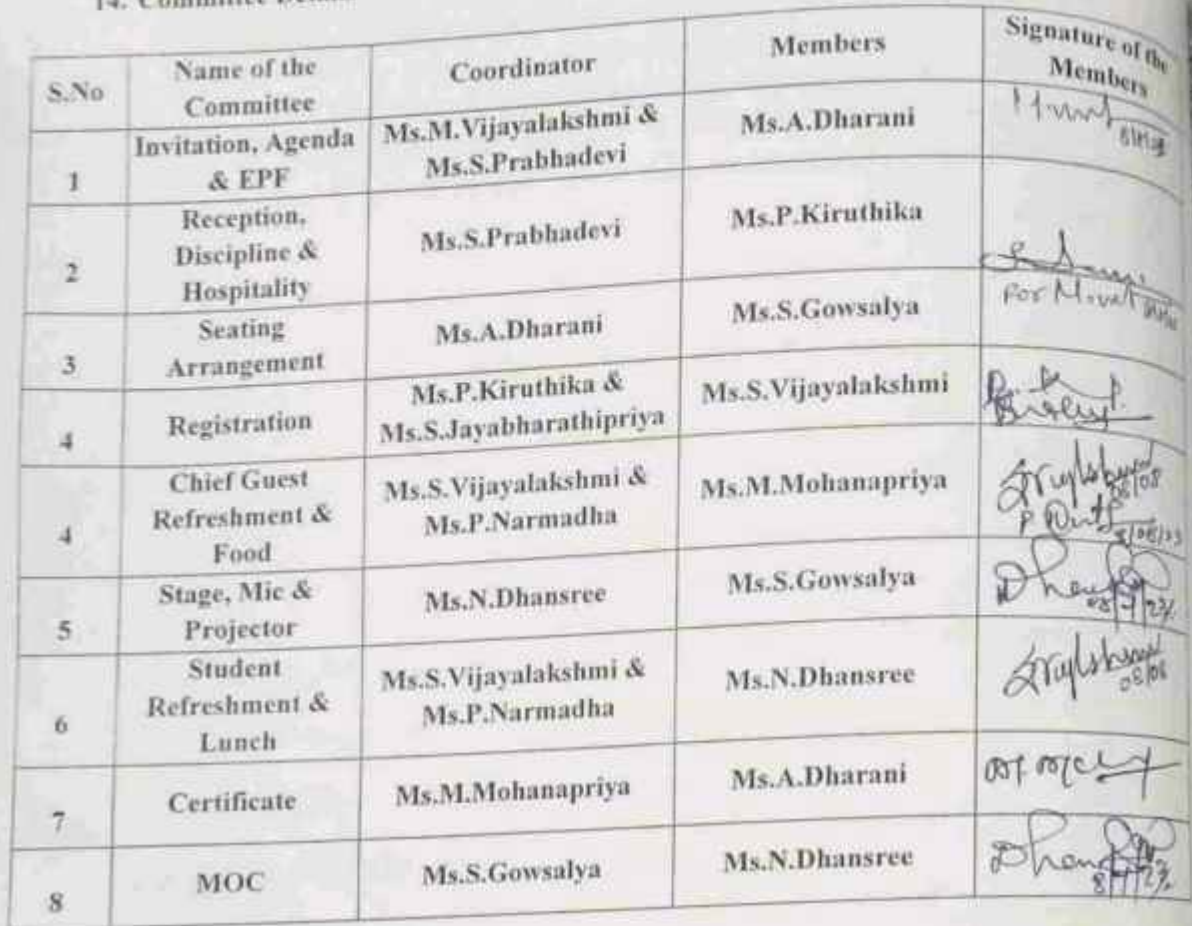 14. Committee
S.No
Name of the
Committee
Coordinator
Members
Signature of the
Members
1
Invitation, Agenda
& EPF
Ms.M.Vijayalakshmi &
Ms.S.Prabhadevi
Ms.A.Dharani
2
Reception,
Discipline &
Hospitality
Ms.S.Prabhadevi
Ms.P.Kiruthika
For
3
Seating
Arrangement
Ms.A.Dharani
Ms.S.Gowsalya
4
Registration
Ms.P.Kiruthika &
Ms.S.Jayabharathipriya
Ms.S.Vijayalakshmi
4
Chief Guest
Refreshment &
Food
Ms.S.Vijayalakshmi &
Ms.P.Narmadha
Ms.M.Mohanapriya
08/08
8/08/23
5
Stage, Mic &
Projector
Ms.N.Dhansree
Ms.S.Gowsalya
6
Student
Refreshment &
Lunch
Ms.S.Vijayalakshmi &
Ms.P.Narmadha
Ms.N.Dhansree
08/08
7
Certificate
Ms.M.Mohanapriya
Ms.A.Dharani
8
MOC
Ms.S.Gowsalya
Ms.N.Dhansree